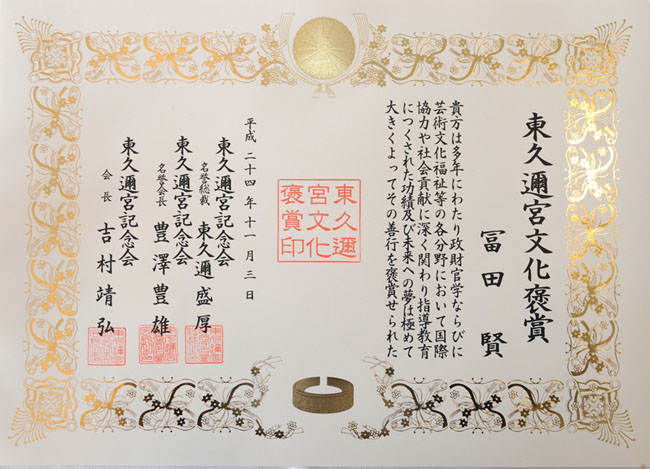 東久邇宮文化褒賞
冨田賢
貴方は多年にわたり政財官学ならびに
芸術文化福祉等の各分野において国際
協力や社会貢献に深く関わり指導教育
につくされた功績及び未来への夢は極めて
大きくよってその善行を褒賞せられた
東久邇
宮文化
褒賞印
平成二十四年十一月三日
東久邇宮記念会
名誉総裁 東久邇盛厚
東久邇宮記念会
名誉会長 豊澤豊雄
東久邇宮記念会
会長 吉村靖弘